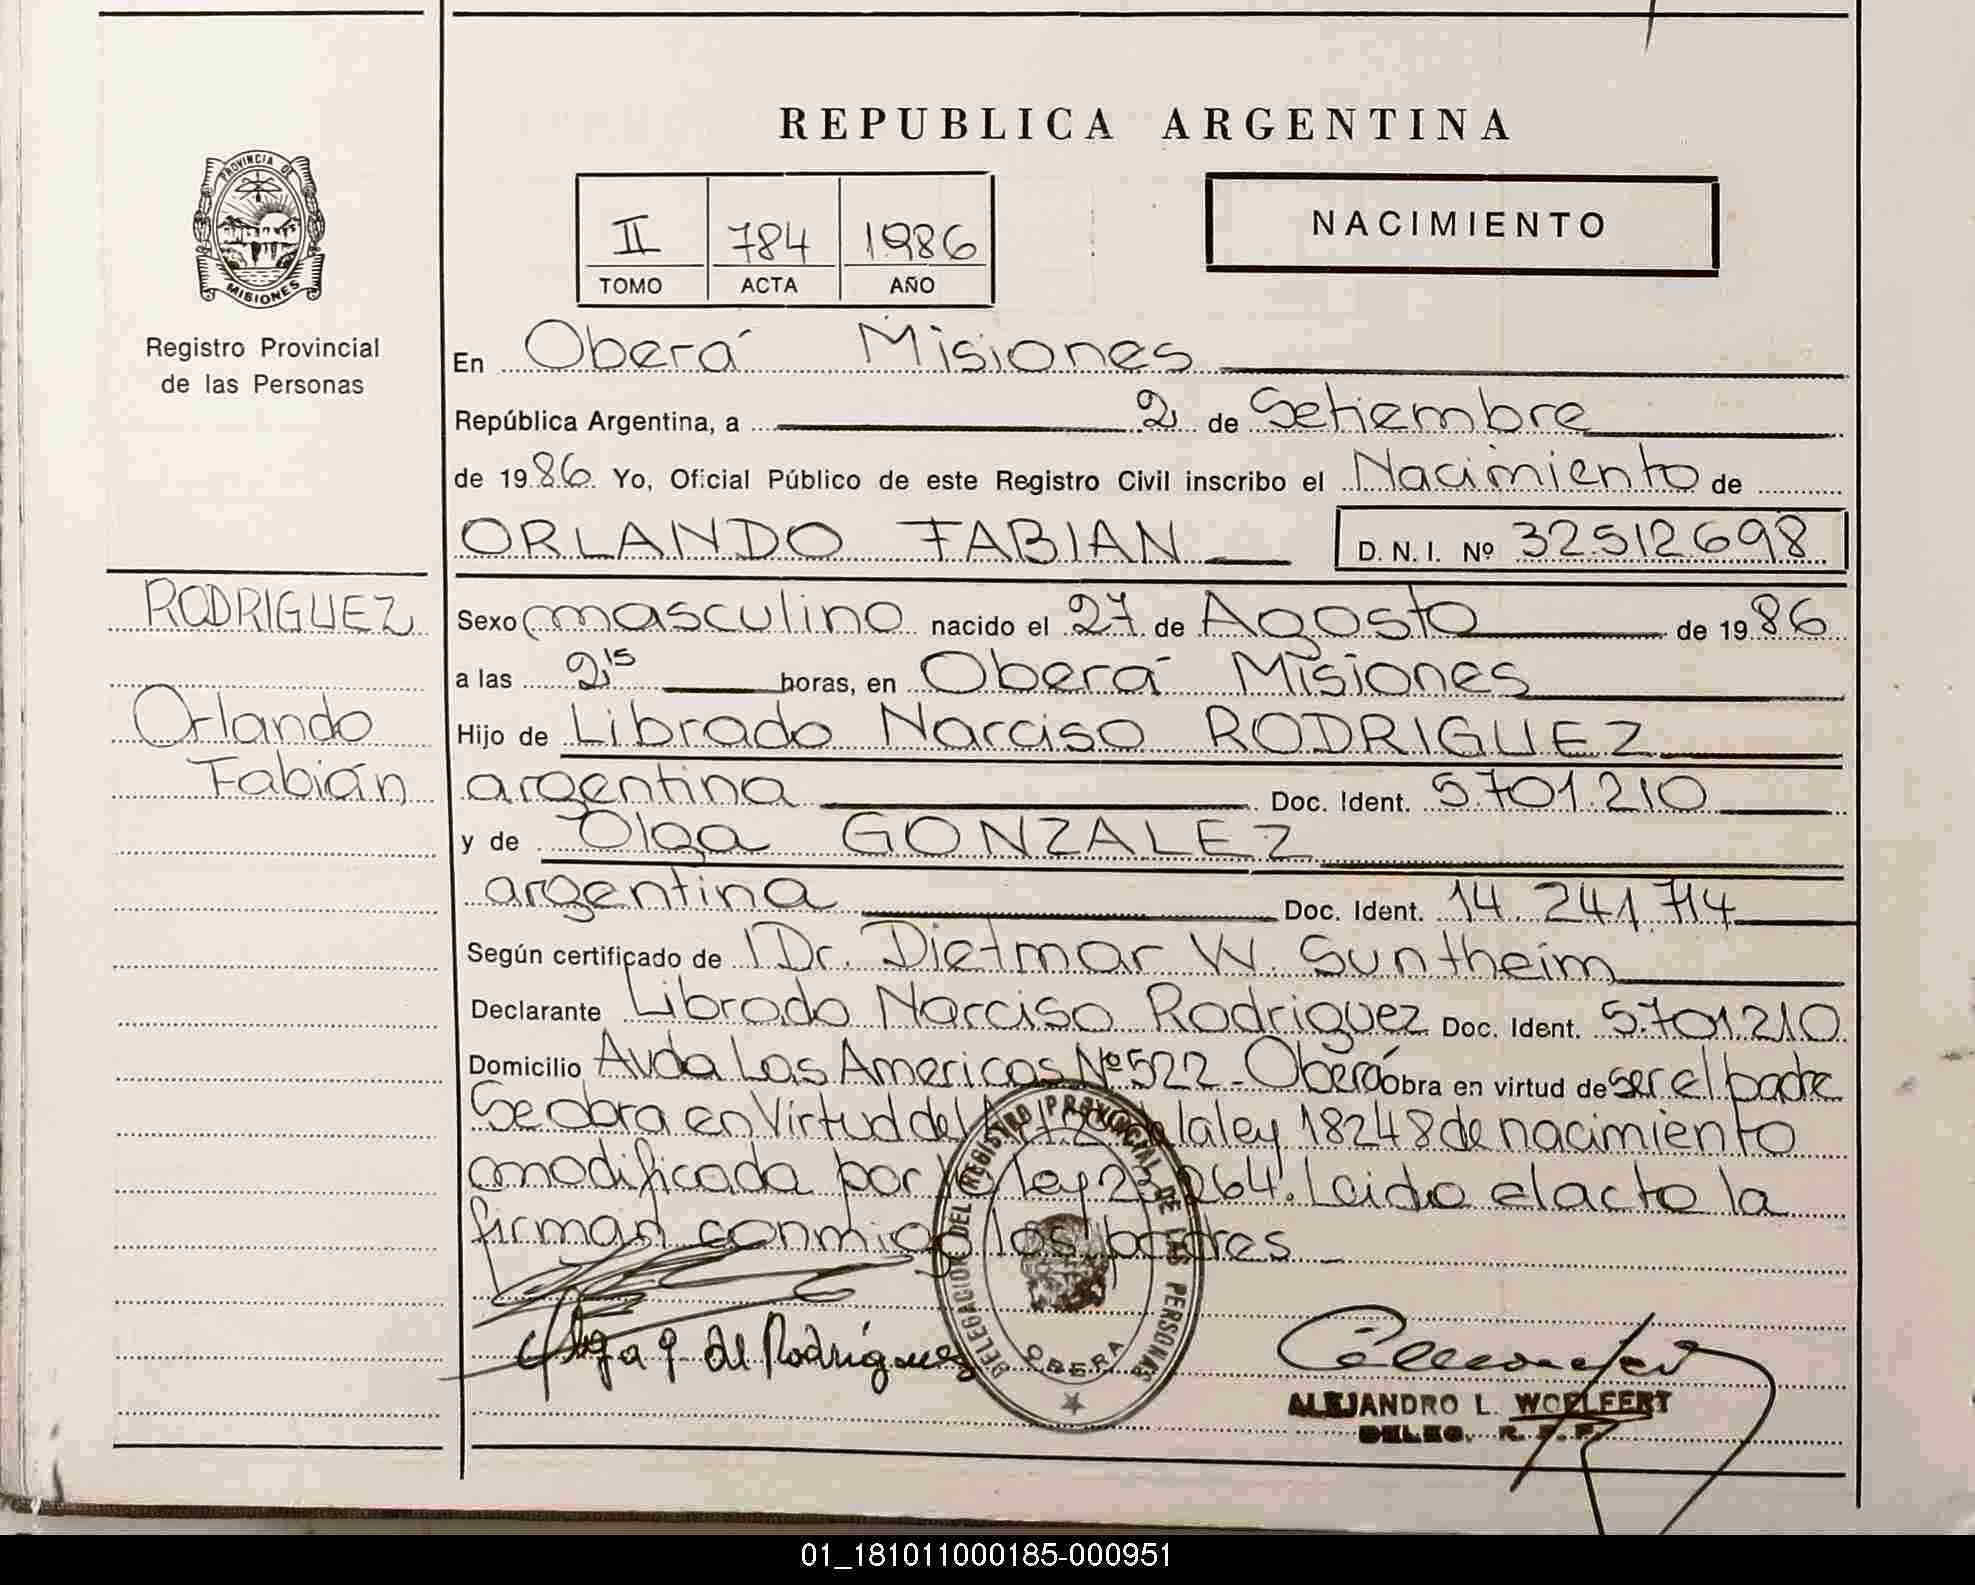 REPUBLICA ARGENTINA
PROVINCIA DE
MISIONES
Registro Provincial
de las Personas
II 784 1986
TOMO ACTA AÑO
NACIMIENTO
En Oberá Misiones
República Argentina, a 2 de Setiembre
de 1986 Yo, Oficial Público de este Registro Civil inscribo el Nacimiento de
ORLANDO FABIAN D. N. I. Nº 32512698
RODRIGUEZ
Orlando
Fabián
Sexo masculino nacido el 27 de Agosto de 1986
a las 2,15 horas, en Oberá Misiones
Hijo de Librado Narciso RODRIGUEZ
argentina Doc. Ident. 5.701.210
y de Olga GONZALEZ
argentina Doc. Ident. 14.241.714
Según certificado de Dr. Dietmar W. Suntheim
Declarante Librado Narciso Rodriguez Doc. Ident. 5.701.210
Domicilio Avda Las Americas Nº 522 - Oberá obra en virtud de ser el padre
Se obra en Virtud del Art. 2 de la ley 18248 de nacimiento
modificada por la ley 23.264. Leido el acto la
firman conmigo los padres
Olga G. de Rodríguez
DELEGACION DEL REGISTRO PROVINCIAL DE LAS PERSONAS
OBERA
ALEJANDRO L. WOELFERT
DELEG. R. P. P.
01_181011000185-000951